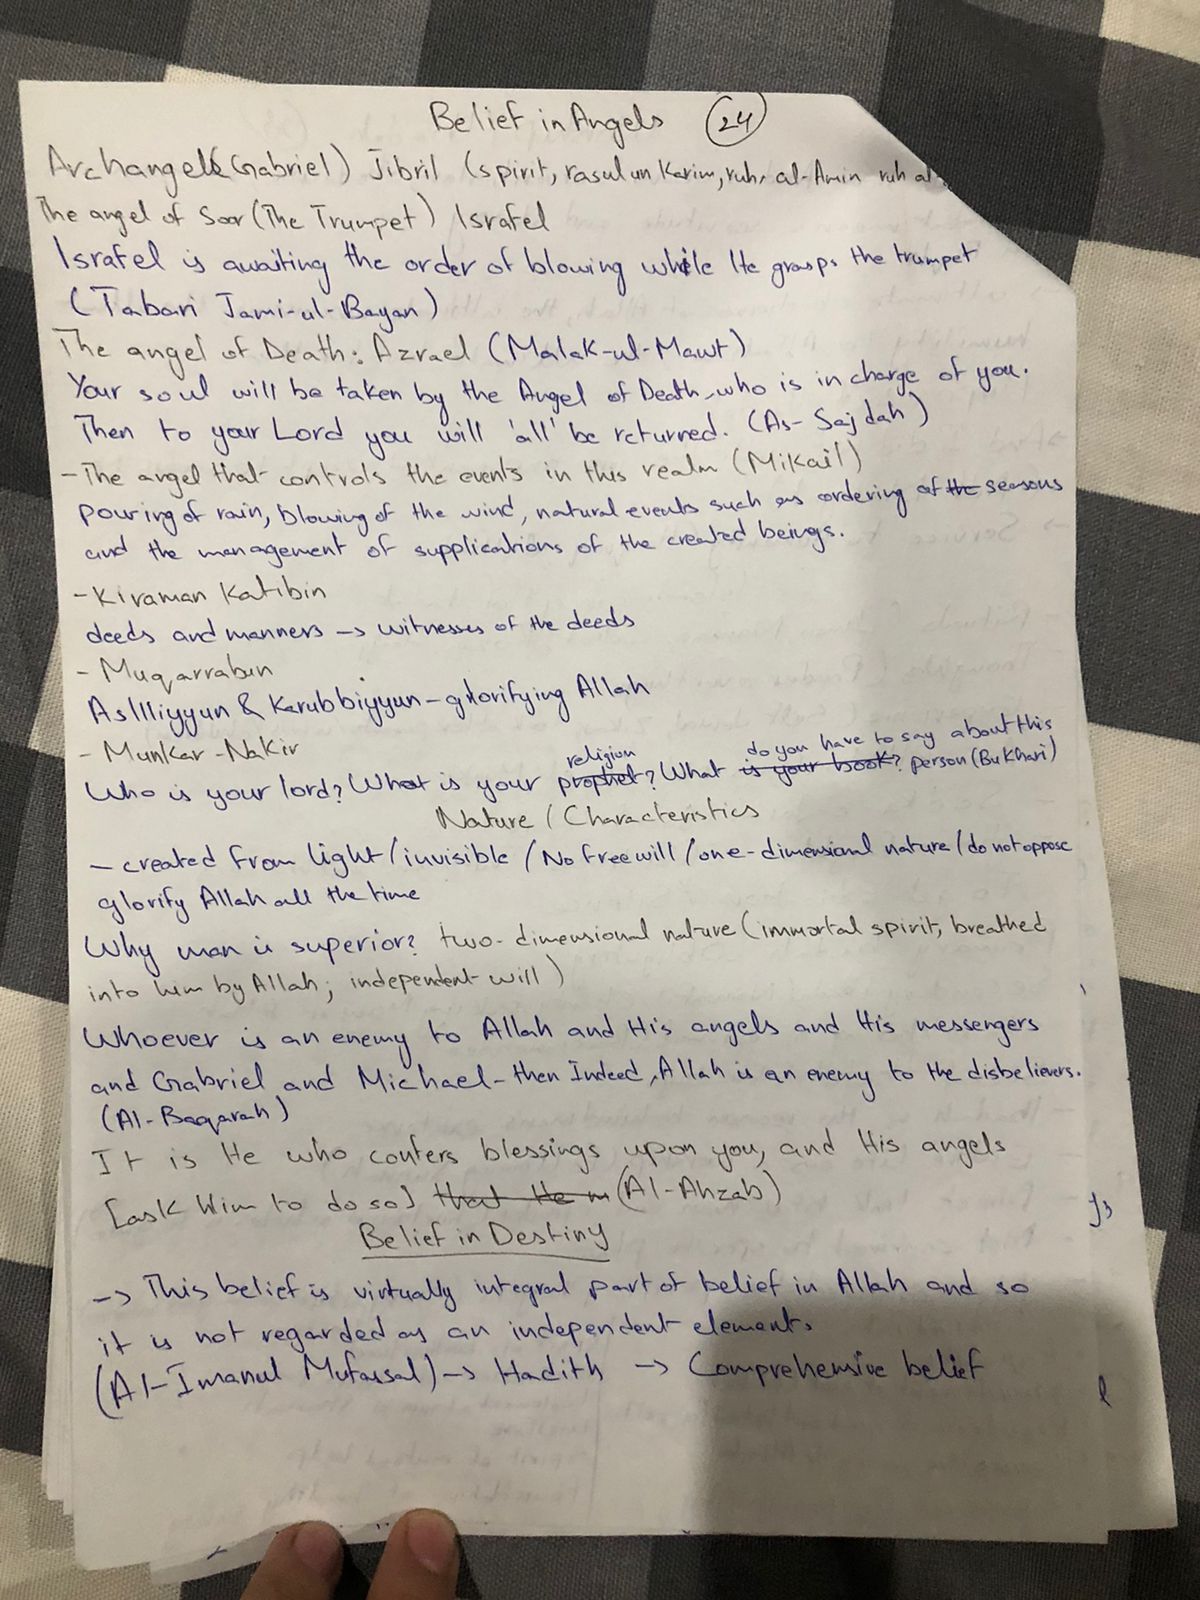 Belief in Angels 24
Archangel (Gabriel) Jibril (spirit, rasulun Karim, ruh, al-Amin ruh al-
The angel of Soor (The Trumpet) Israfel
Israfel is awaiting the order of blowing while He grasps the trumpet
(Tabari Jami-ul-Bayan)
The angel of Death: Azrael (Malak-ul-Mawt)
Your soul will be taken by the Angel of Death, who is in charge of you.
Then to your Lord you will 'all' be returned. (As-Sajdah)
- The angel that controls the events in this realm (Mikail)
pouring of rain, blowing of the wind, natural events such as ordering of the seasons
and the management of supplications of the created beings.
- Kiraman Katibin
deeds and manners -> witnesses of the deeds
- Muqarrabun
As Illiyyun & Karubbiyyun - glorifying Allah
- Munkar-Nakir
religion do you have to say about this
Who is your lord? What is your prophet? What is your book? person (Bukhari)
Nature / Characteristics
- created from light / invisible / No free will / one-dimensional nature / do not oppose
glorify Allah all the time
Why man is superior? two-dimensional nature (immortal spirit, breathed
into him by Allah; independent will)
Whoever is an enemy to Allah and His angels and His messengers
and Gabriel and Michael - then Indeed, Allah is an enemy to the disbelievers.
(Al-Baqarah)
It is He who confers blessings upon you, and His angels
[ask Him to do so] that He (Al-Ahzab)
Belief in Destiny
-> This belief is virtually integral part of belief in Allah and so
it is not regarded as an independent element.
(Al-Imanul Mufassal) -> Hadith -> Comprehensive belief